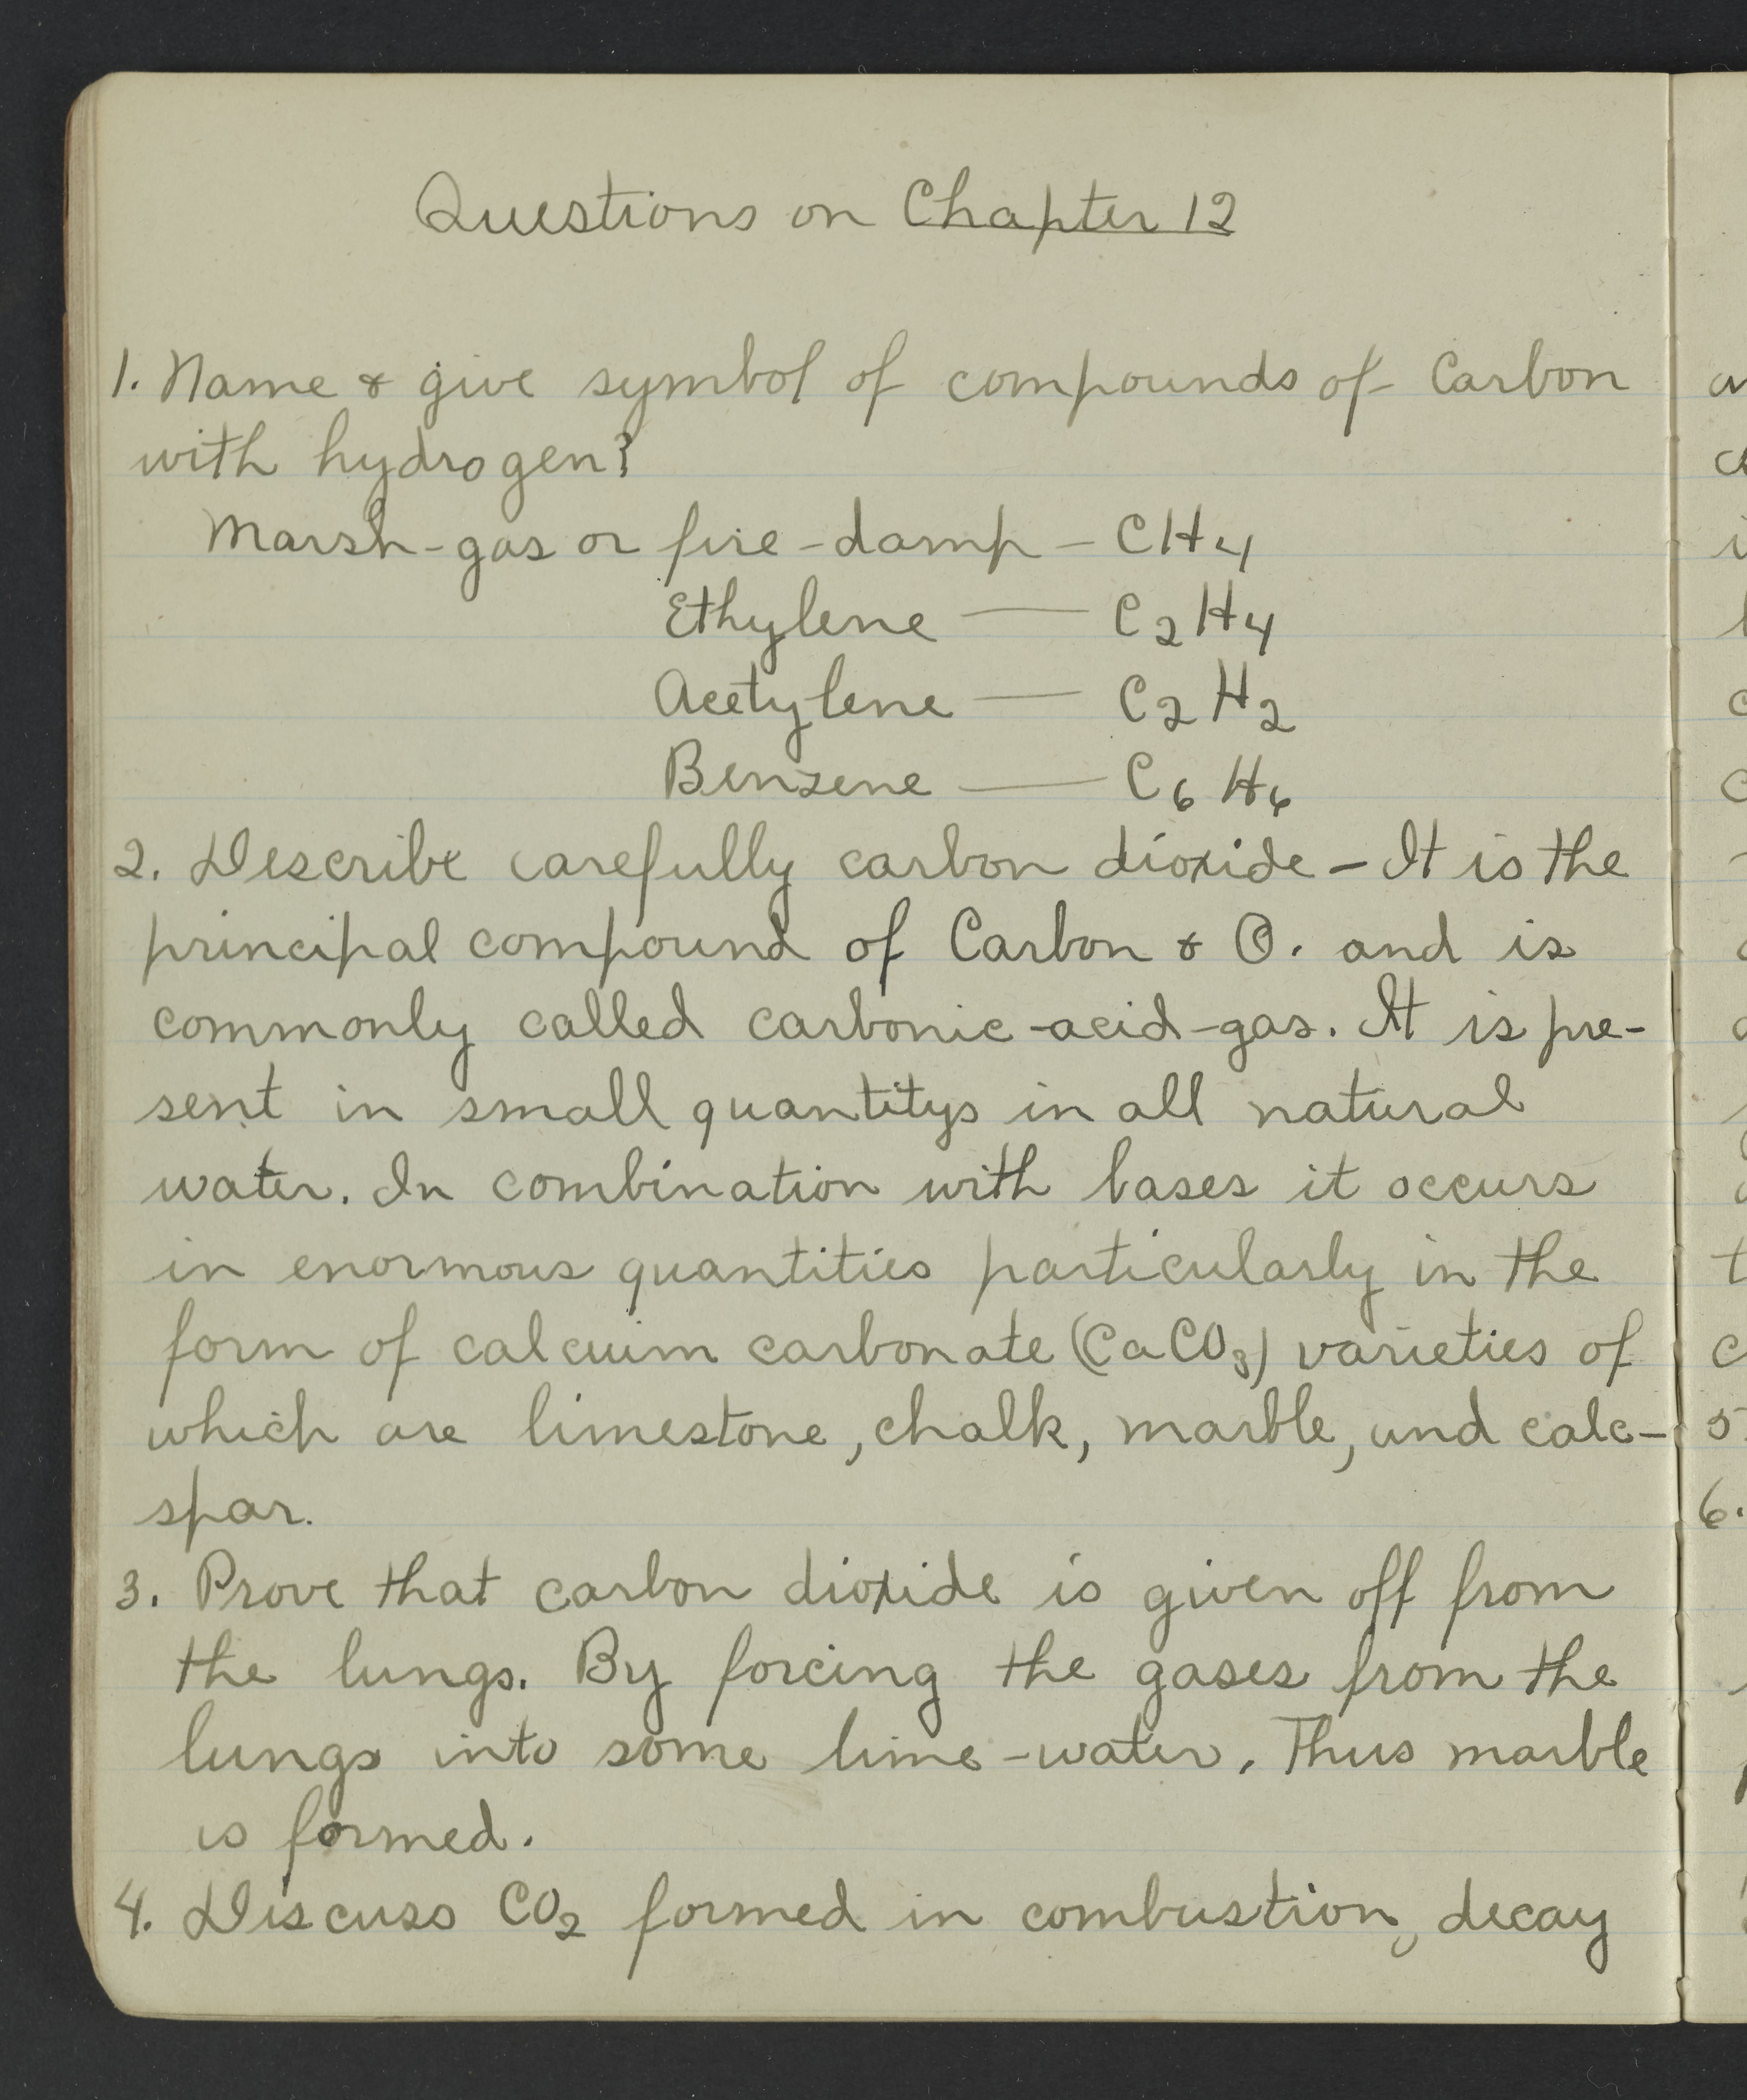 Questions on Chapter 12
1. Name & give symbol of compounds of Carbon
with hydrogen?
Marsh-gas or fire-damp - CH4
Ethylene — C2H4
Acetylene — C2H2
Benzene — C6H6
2. Describe carefully carbon dioxide - It is the
principal compound of Carbon & O. and is
commonly called carbonic-acid-gas. It is pre-
sent in small quantitys in all natural
water. In combination with bases it occurs
in enormous quantities particularly in the
form of calcuim carbonate (CaCO3) varieties of
which are limestone, chalk, marble, and calc-
spar.
3. Prove that carbon dioxide is given off from
the lungs. By forcing the gases from the
lungs into some lime-water. Thus marble
is formed.
4. Discuss CO2 formed in combustion, decay
5.
6.